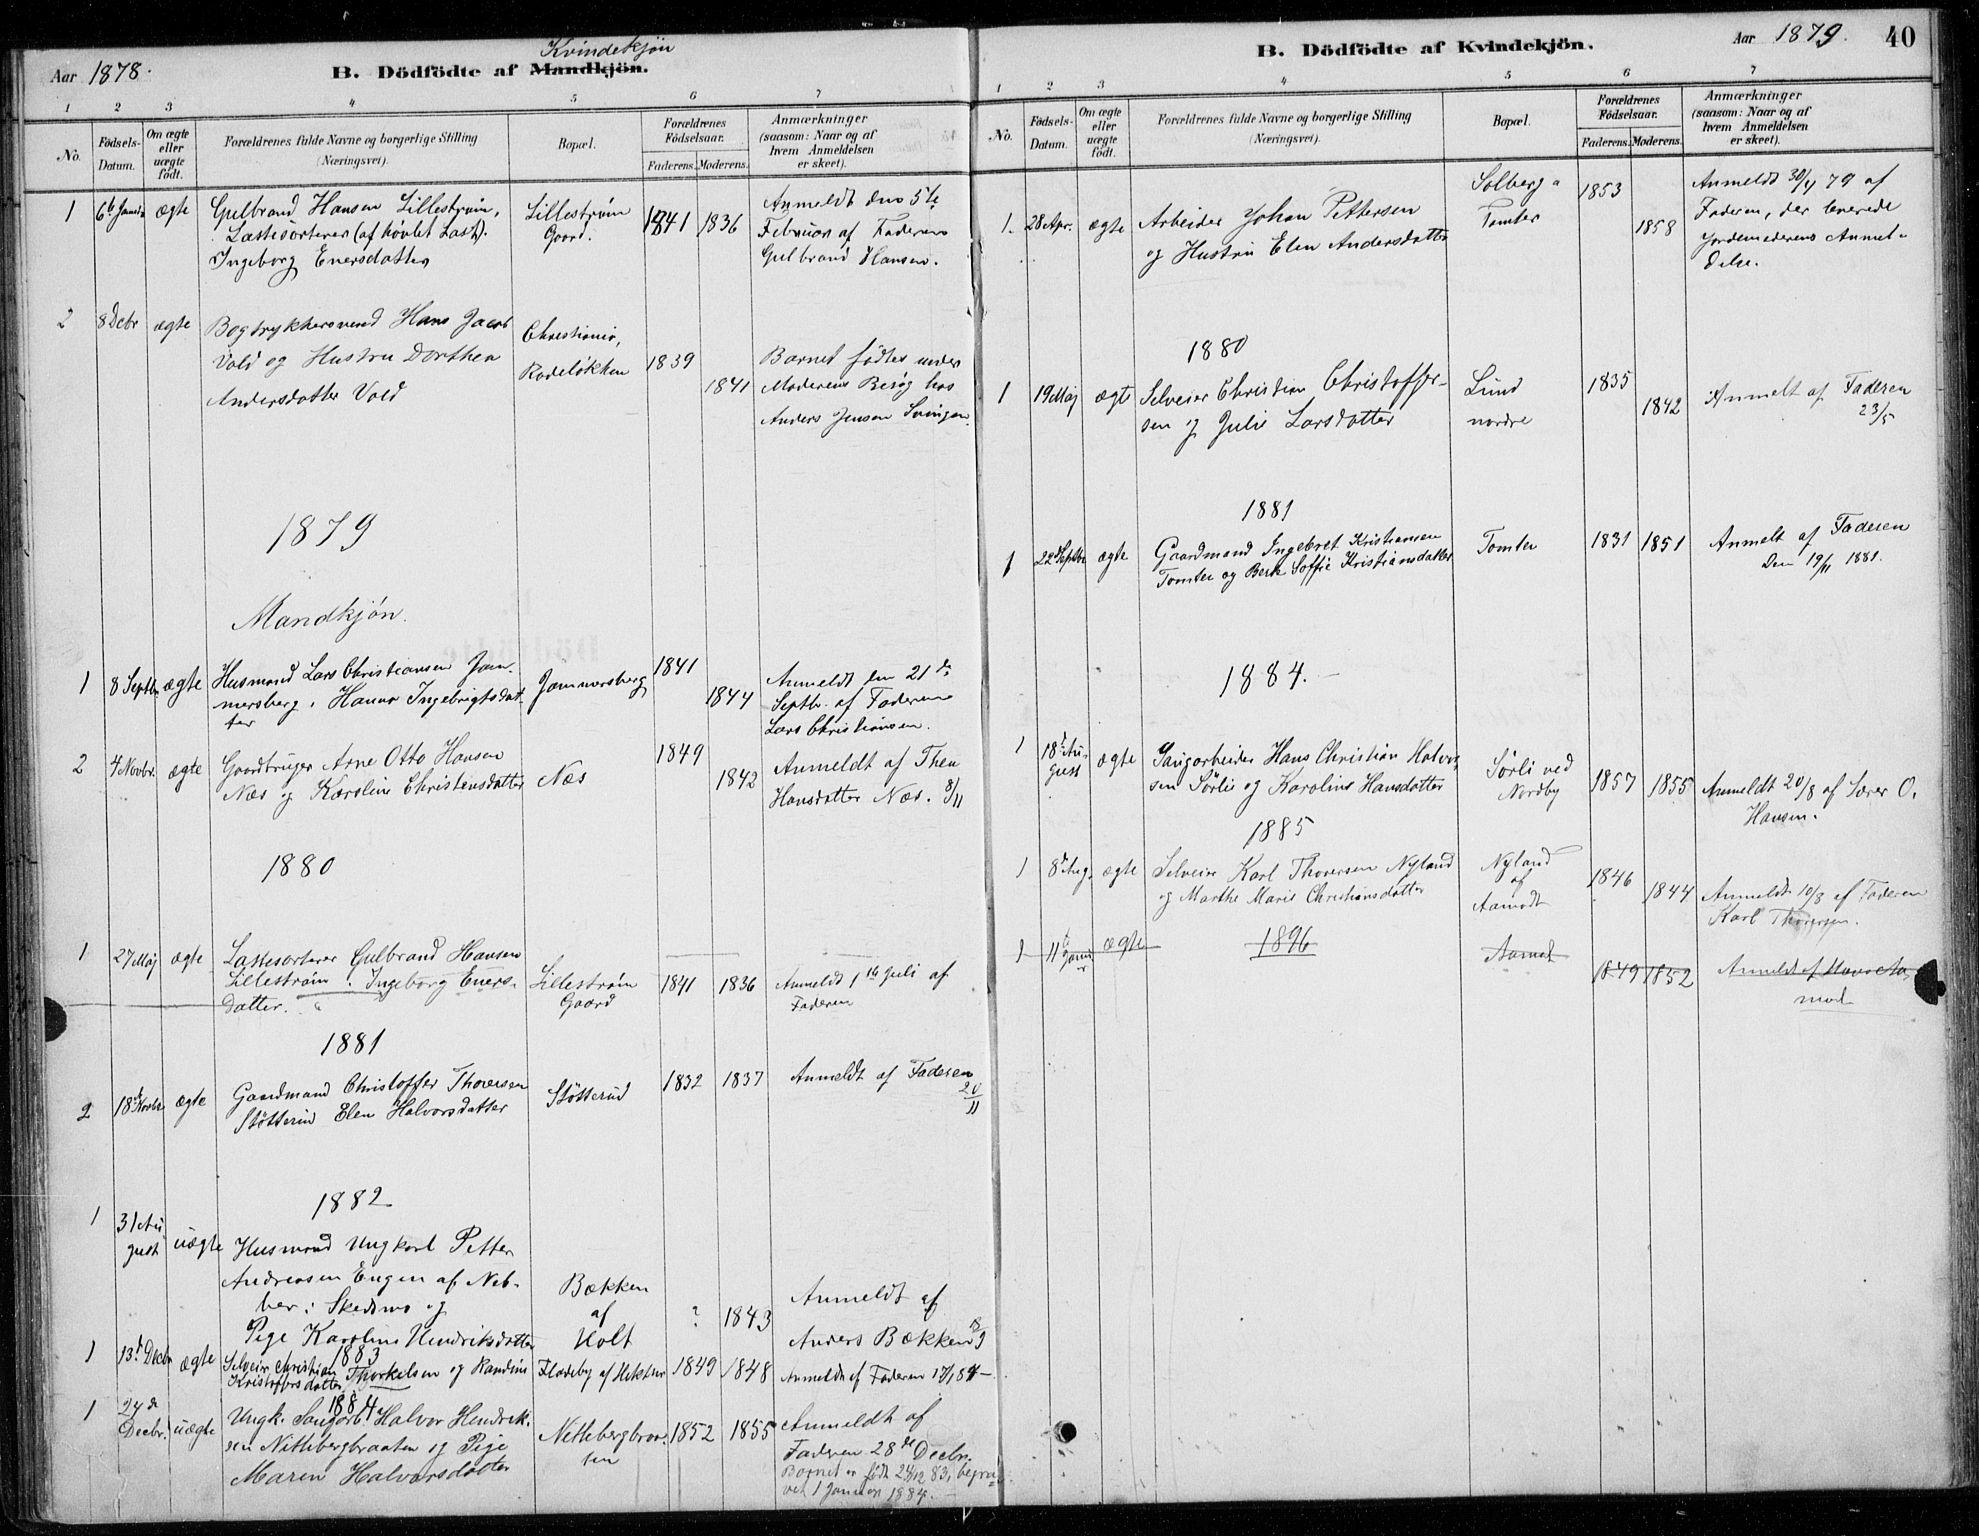 Aar 1878.
Kvindekjön
B. Dödfödte af Mandkjön.
1 2 3 4 5 6 7
No.
Födsels-Datum.
Om ægte eller uægte födt.
Forældrenes fulde Navne og borgerlige Stilling
(Næringsvei).
Bopæl.
Forældrenes Födselsaar.
Faderens. Moderens.
Anmærkninger
(saasom: Naar og af
hvem Anmeldelsen
er skeet).
1 6te Januar ægte Gulbrand Hansen Lillestrøm, Lillestrøm 1841 1836 Anmeldt den 5te
Lastesorterer (af høvlet Last). Gaard. Februar af Faderen
Ingeborg Enersdatter Gulbrand Hansen.
2 8 Decbr ægte Bogtrykkersvend Hans Jacob Christiania, 1839
Vold og Hustru Dorthea Rodeløkken 1841 Barnet fødtes under
Andersdatter Vold Moderens Besøg hos
Anders Jensen Svingen.
1879
Mandkjön.
1 8 Septbr ægte Husmand Lars Christiansen Jam- Jammersberg 1841
mersberg, Hanna Ingebrigtsdat- 1844 Anmeldt den 21de
ter Septbr. af Faderen
Lars Christiansen.
2 4 Novbr. ægte Gaardbruger Arne Otto Hansen Næs 1849
Næs og Karoline Christensdatter 1842 Anmeldt af Thea
Hansdatter Næs. 8/11
1880
1 27 Maj ægte Lastesorterer Gulbrand Hansen
Lillestrøm. Ingeborg Eners- Lillestrøm 1841 1836 Anmeldt 1te Juli af
datter. Gaard Faderen
1881
2 18de Novbr ægte Gaardmand Christoffer Thoresen Støtterud 1832 1837 Anmeldt af Faderen
Støtterud Elen Halvorsdatter 20/11
1882
1 31 August uægte Husmand Ungkarl Petter
Andreasen Engen af Neb-
ber i Skedsmo og Bækken af Holt ? 1843 Anmeldt af
Pige Karoline Hendriksdatter Anders Bækken
1883
1 13de Decbr ægte Selveier Christian Thorkelsen og Randine Fladeby 1849 1848 Anmeldt af Faderen
Kristoffersdatter
1884
1 24de Decbr. uægte Ungk. Saugarb. Halvor Hendrik- Nittebergbraa- 1852 1855 Anmeldt af
sen Nittebergbraaten og Pige ten Faderen 28de Decbr.
Maren Halvorsdatter Barnet er født 24/12 83, begra-
vet 1 Januar 1884.
B. Dödfödte af Kvindekjön.
Aar 1879.
40
1 2 3 4 5 6 7
No.
Födsels-Datum.
Om ægte eller uægte födt.
Forældrenes fulde Navne og borgerlige Stilling
(Næringsvei).
Bopæl.
Forældrenes Födselsaar.
Faderens. Moderens.
Anmærkninger
(saasom: Naar og af
hvem Anmeldelsen
er skeet).
1. 28 Apr. ægte Arbeider Johan Pettersen Solberg- 1853 Anmeldt 30/4 79 af
og Hustru Elen Andersdatter Tomter 1858 Faderen, der leverede
Jordemoderens Anmel-
delse.
1880
1 19 Maj ægte Selveier Christian Christoffer- Lund 1835 Anmelt af Faderen
sen og Julie Larsdatter nordre 1842 23/5
1881
1 22de Septbr ægte Gaardmand Ingebret Kristiansen Tomter 1831 1851 Anmelt af Faderen
Tomter og Berte Soffie Kristiansdatter Den 19/11 1881.
1884.
1 18de August ægte Saugarbeider Hans Christian Halvor- Sørli ved 1857 1855 Anmeldt 20/8 af Lærer O.
sen Sørlie og Karoline Hansdatter Nordby Hansen.
1885
1 8de Aug. ægte Selveier Karl Thoresen Nyland Nyland af Aamodt 1846 1844 Anmeldt 10/8 af Faderen
og Marthe Marie Christiansdatter Karl Thoresen.
1 11te Januar ægte 1896 Aamot 1849 1852 Anmeldt af
mod